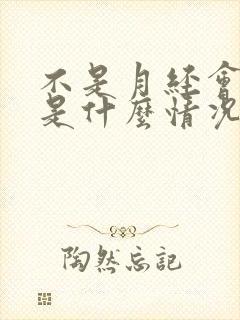 不是月經會
是什麼情況
陶然忘記